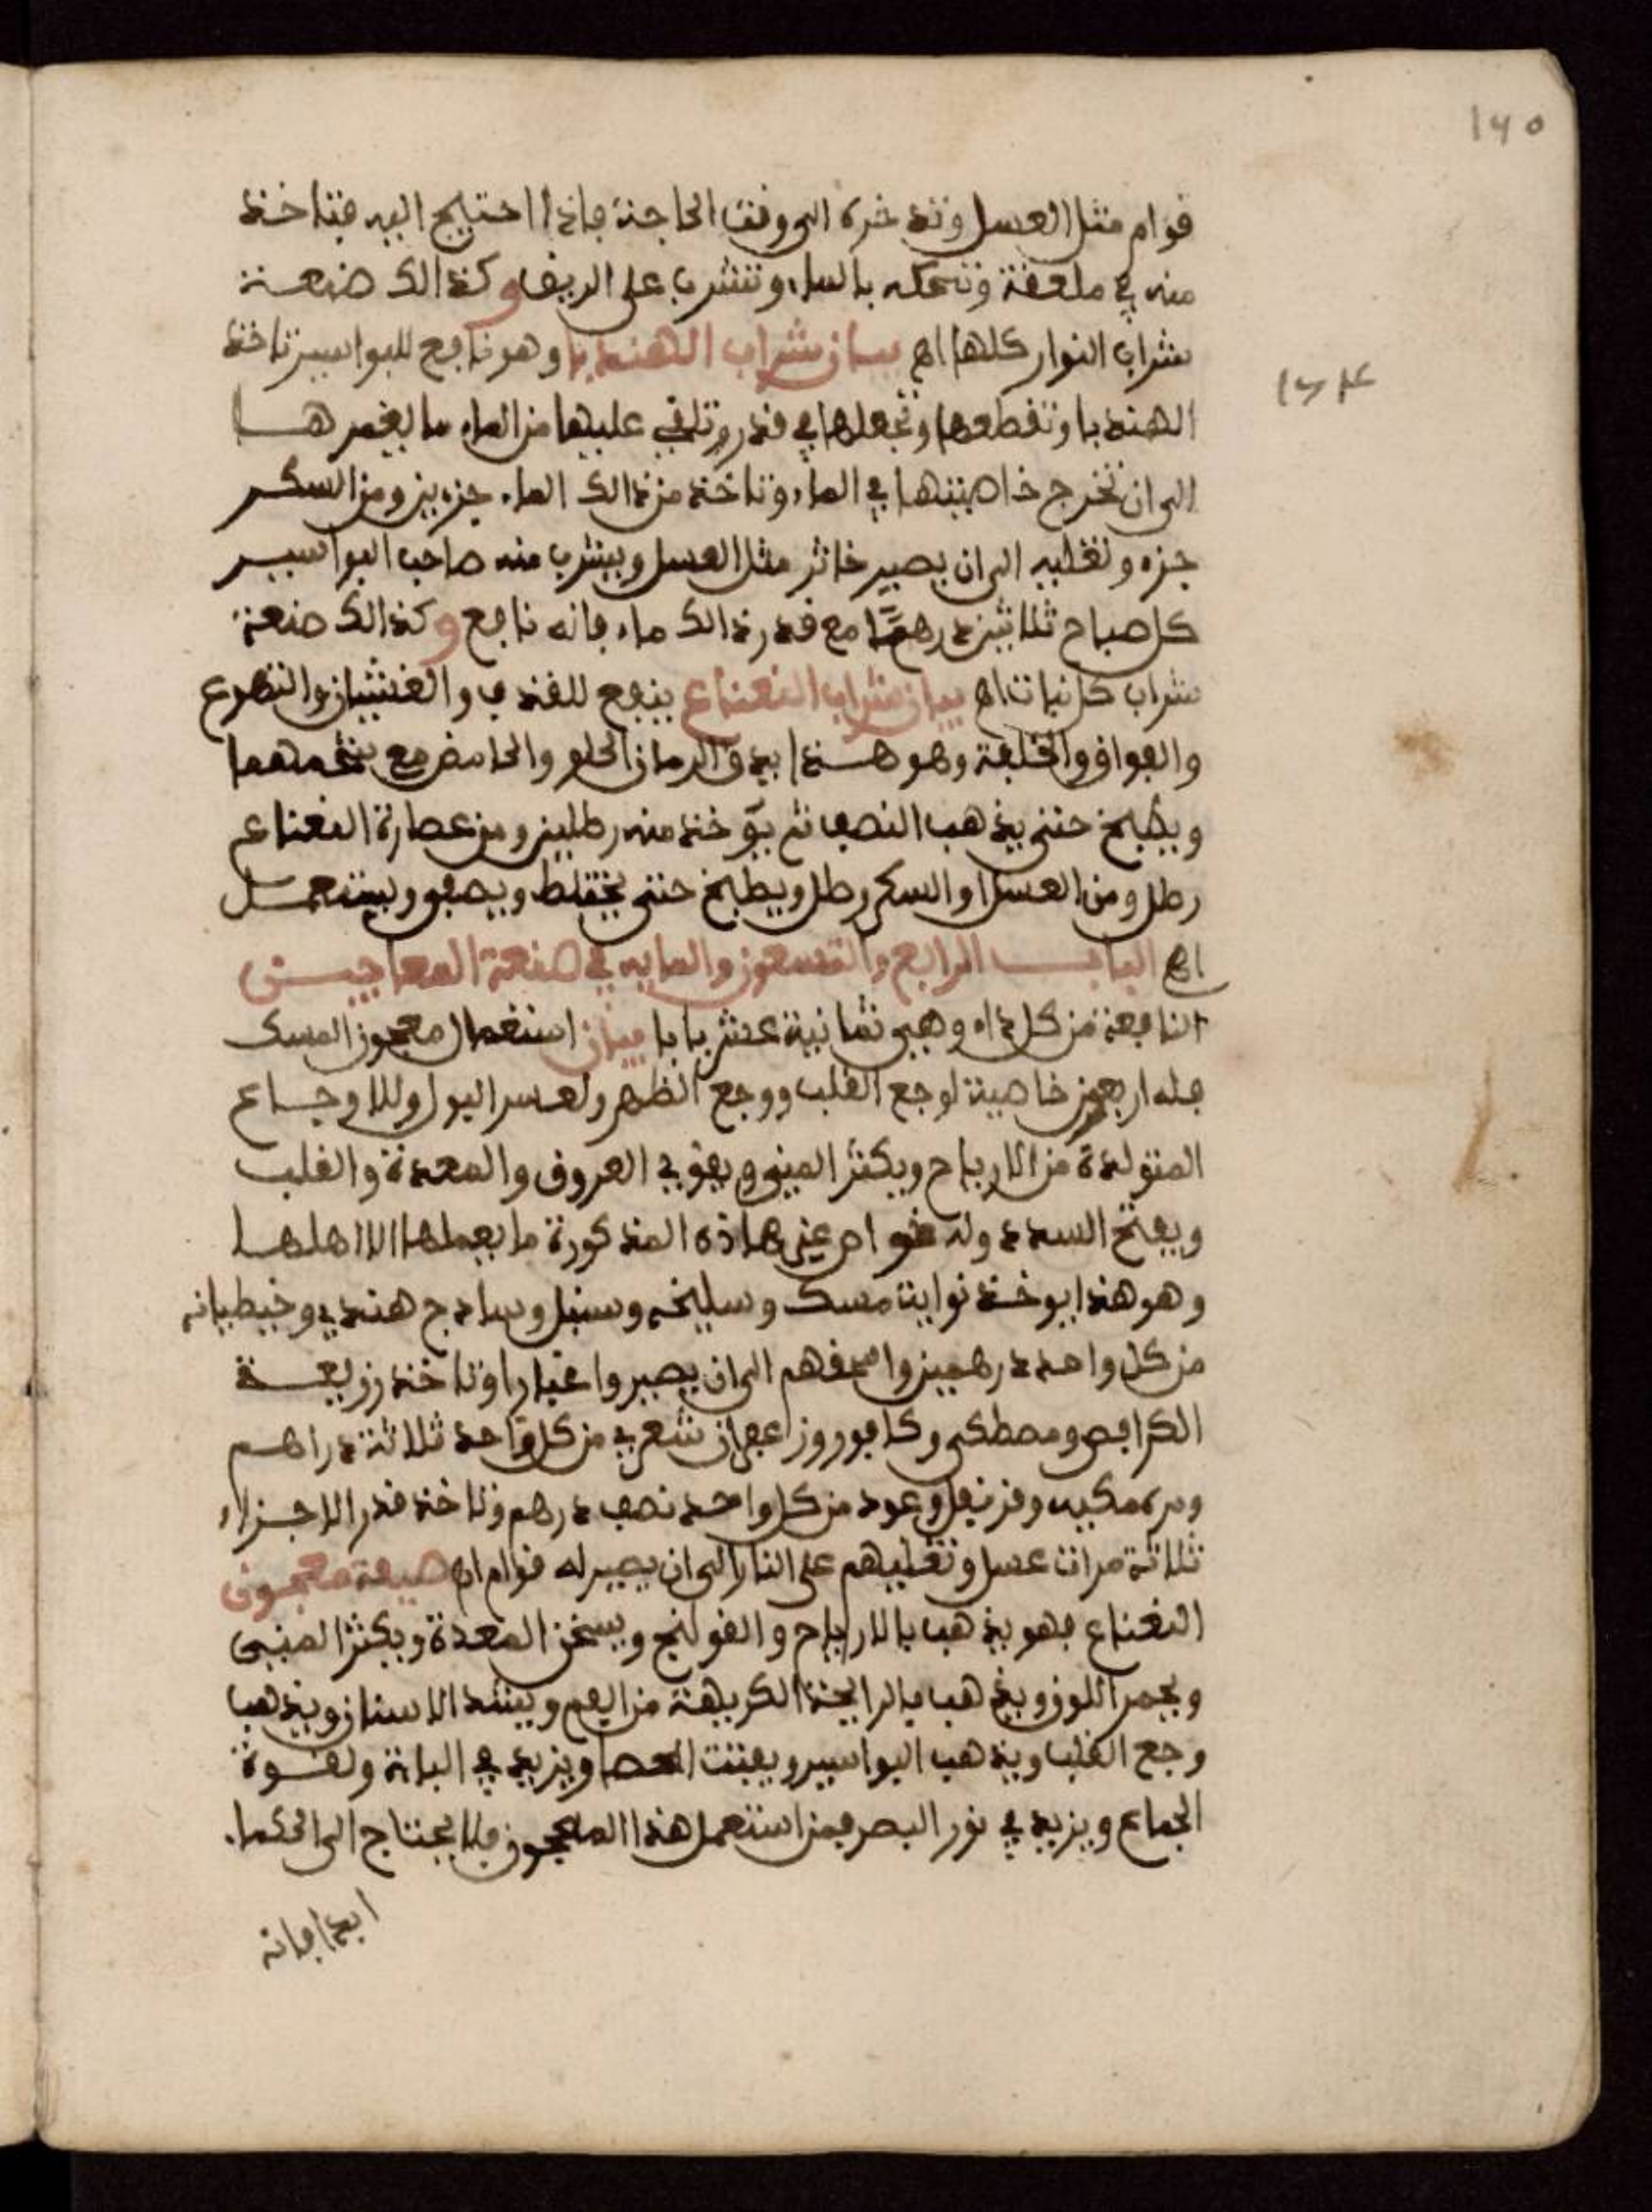 ١٧٥
قوام مثل العسل وتدخره الى وقت الحاجة فاذا احتيج اليه فتاخذ
منه في ملعقة وتحكه بالماء وتشرب على الريق وكذالك صنعة
شراب النوار كلها اهـ بيان شراب الهندبا وهو نافع للبواسير تاخذ
الهندبا وتقطعها وتجعلها في قدر وتلقي عليها من الماء ما يغمرها
الى ان تخرج خاصيتها في الماء وتاخذ من ذالك الماء جزءين ومن السكر
جزء وتغليه الى ان يصير خاثر مثل العسل ويشرب منه صاحب البواسير
كل صباح ثلاثين درهمًا مع قدر ذالك ماء فانه نافع وكذالك صنعة
شراب كل نبات اهـ بيان شراب النعناع ينفع للقذف والغثيان والتهوع
والفواق والخلفة وهو هذا يدق الرمان الحلو والحامض مع شحمهما
ويطبخ حتى يذهب النصف ثم يؤخذ منه رطلين ومن عصارة النعناع
رطل ومن العسل او السكر رطل ويطبخ حتى يختلط ويصفى ويستعمل
اهـ الباب الرابع والتسعون والمايه في صنعة المعاجين
النافعة من كل داء وهي ثمانية عشر بابا بيان استعمال معجون المسك
فله اربعين خاصية لوجع القلب ووجع الظهر ولعسر البول وللاوجاع
المتولدة من الارياح ويكثر المني ويقوي العروق والمعدة والقلب
ويفتح السدد وله خواص غير هاذه المذكورة ما يعملها الا اهلها
وهو هذا يوخذ نوايت مسك وسليخه وسنبل وسادج هندي وخيطيانه
من كل واحد درهمين واسحقهم الى ان يصيروا غبارا وتاخذ زريعة
الكرافص ومصطكى وكافور وزاعفران شعري من كل واحد ثلاثة دراهم
ومر مكيه وقرنفل وعود من كل واحد نصف درهم وتاخذ قدر الاجزاء
ثلاثة مرات عسل وتغليهم على النار الى ان يصير له قوام اهـ صيفة معجون
النعناع فهو يذهب بالارياح والقولنج ويسخن المعدة ويكثر المني
ويحمر اللون ويذهب بالرايحة الكريهة من الفم ويشد الاسنان ويذهب
وجع القلب ويذهب البواسير ويفتت الحصا ويزيد في الباه وقوة
الجماع ويزيد في نور البصر فمن استعمل هذا المعجون فلا يحتاج الى الحكماء
ابدا فانه